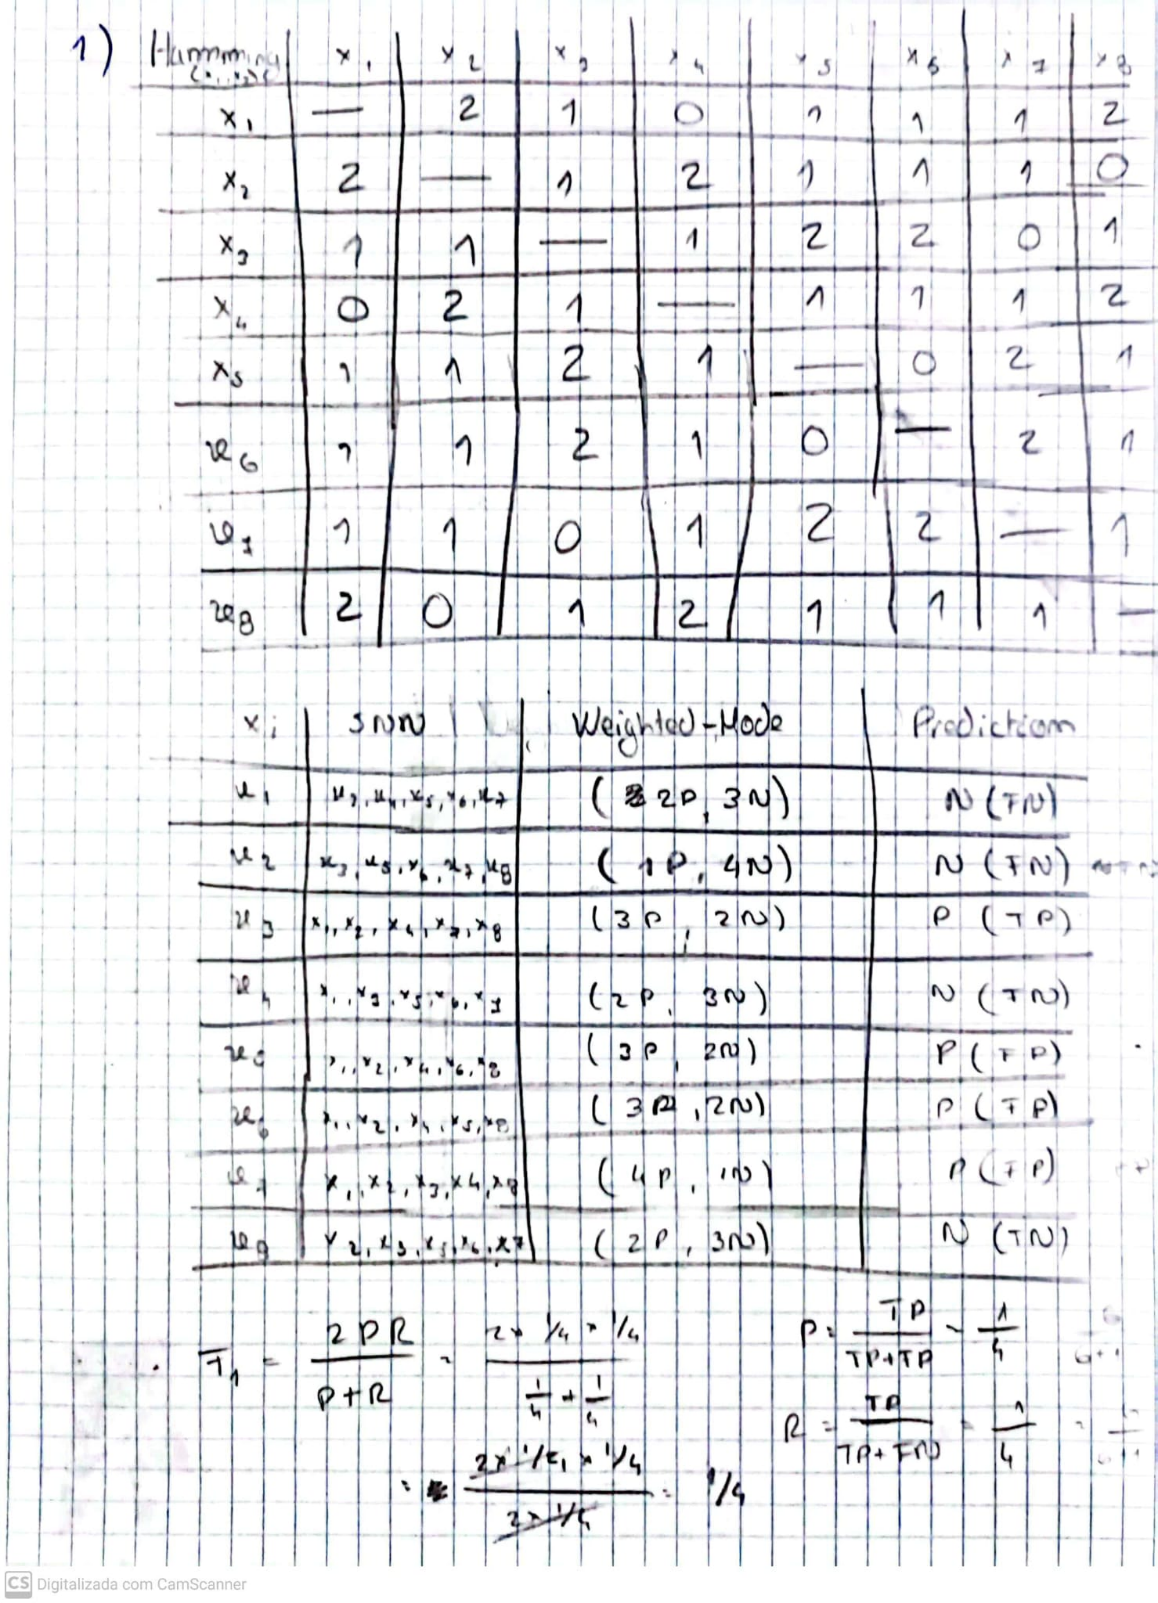 1) Hamming x1 x2 x3 x4 x5 x6 x7 x8
x1 — 2 1 0 1 1 1 2
x2 2 — 1 2 1 1 1 0
x3 1 1 — 1 2 2 0 1
x4 0 2 1 — 1 1 1 2
x5 1 1 2 1 — 0 2 1
x6 1 1 2 1 0 — 2 1
x7 1 1 0 1 2 2 — 1
x8 2 0 1 2 1 1 1 —
xi 5NN Weighted-Mode Prediction
x1 x3, x4, x5, x6, x7 (2P, 3N) N (FN)
x2 x3, x5, x6, x7, x8 (1P, 4N) N (FN)
x3 x1, x2, x4, x7, x8 (3P, 2N) P (TP)
x4 x1, x3, x5, x6, x7 (2P, 3N) N (FN)
x5 x1, x2, x4, x6, x8 (3P, 2N) P (FP)
x6 x1, x2, x4, x5, x8 (3P, 2N) P (FP)
x7 x1, x2, x3, x4, x8 (4P, 1N) P (FP)
x8 x2, x3, x5, x6, x7 (2P, 3N) N (TN)
F1 = 2PR / P+R = 2 × 1/4 × 1/4 / 1/4 + 1/4 P = TP / TP+FP = 1/4
R = TP / TP+FN = 1/4
= 2 × 1/4 × 1/4 / 2 × 1/4 = 1/4
CS Digitalizada com CamScanner